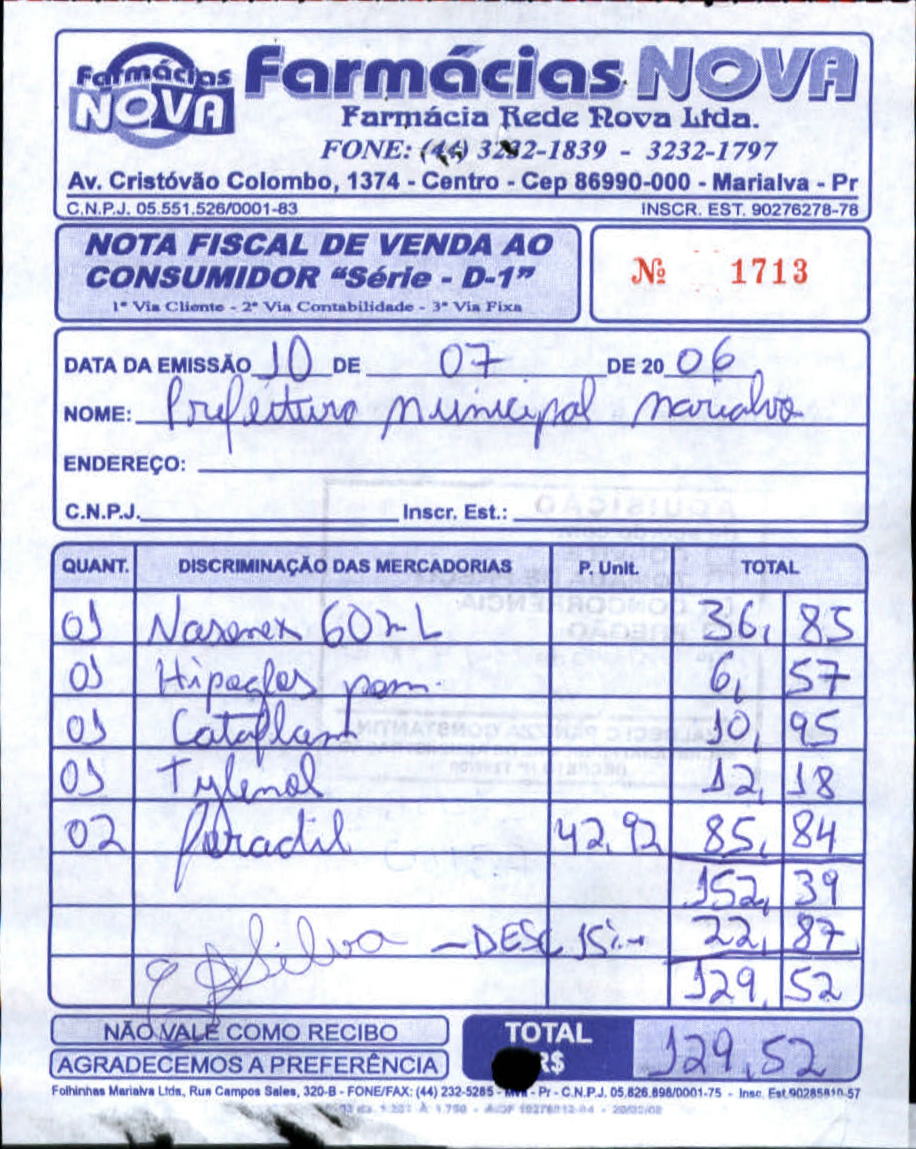 Farmácias NOVA
Farmácias NOVA
Farmácia Rede Nova Ltda.
FONE: (44) 3232-1839 - 3232-1797
Av. Cristóvão Colombo, 1374 - Centro - Cep 86990-000 - Marialva - Pr
C.N.P.J. 05.551.526/0001-83 INSCR. EST. 90276278-78
NOTA FISCAL DE VENDA AO
CONSUMIDOR "Série - D-1"
1ª Via Cliente - 2ª Via Contabilidade - 3ª Via Fixa
Nº 1713
DATA DA EMISSÃO 10 DE 07 DE 20 06
NOME: Prefeitura Municipal Marialva
ENDEREÇO:
C.N.P.J. Inscr. Est.:
QUANT. DISCRIMINAÇÃO DAS MERCADORIAS P. Unit. TOTAL
01 Nasonex 60mL 36,85
01 Hipoglos pom. 6,57
01 10,95
01 Tylenol 12,18
02 42,92 85,84
152,39
Silva - DESC 15% 22,87
129,52
NÃO VALE COMO RECIBO
AGRADECEMOS A PREFERÊNCIA
TOTAL R$ 129,52
Folhinhas Marialva Ltda, Rua Campos Sales, 320-B - FONE/FAX: (44) 232-5285 - Mva - Pr - C.N.P.J. 05.826.898/0001-75 - Insc. Est.90285810-57